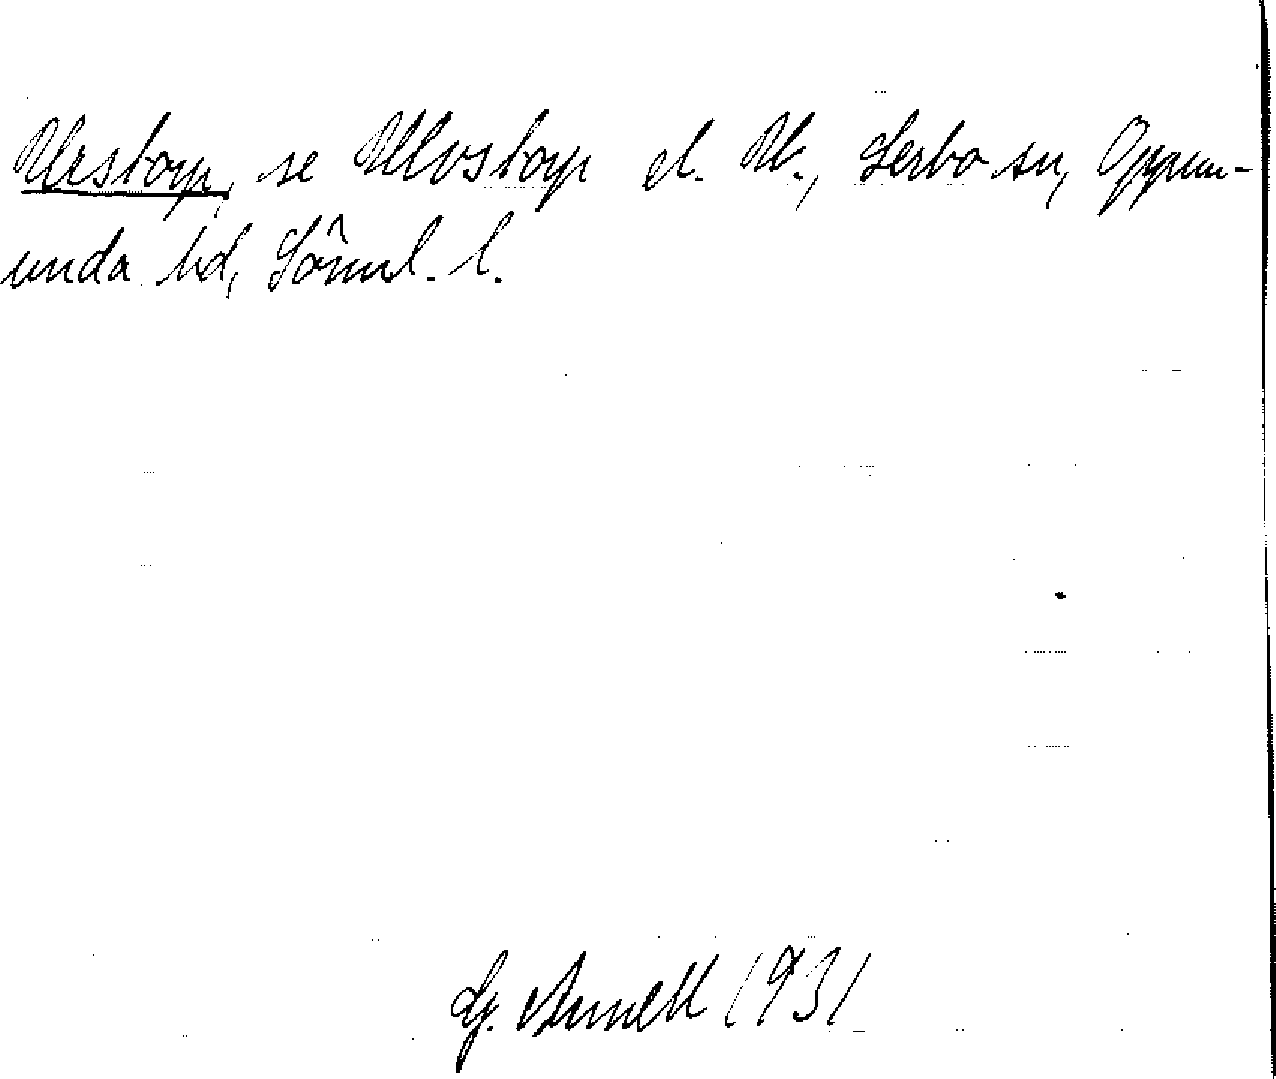 Urstorp, se Ulvstorp el. U., Lerbo sn, Oppun-
unda hd, Sörml. l.
Lg. Arnell 1931